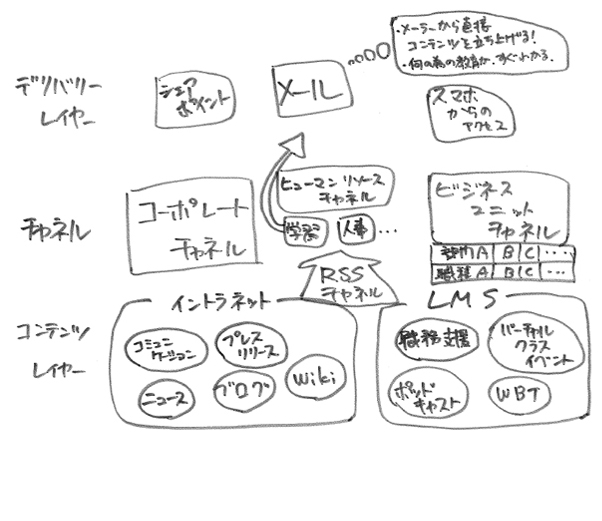 ・メーラーから直接
コンテンツを立ち上げる!
・何の為の教育か、すぐわかる.
デリバリー
レイヤー
シェア
ポイント
メール
スマホ
からの
アクセス
チャネル
コーポレート
チャネル
ヒューマンリソース
チャネル
学習
人事
...
ビジネス
ユニット
チャネル
部門A B C ....
職種A B C ...
RSS
チャネル
コンテンツ
レイヤー
イントラネット
コミュニ
ケーション
プレス
リリース
ニュース
ブログ
Wiki
LMS
職務支援
バーチャル
クラス
イベント
ポッド
キャスト
WBT